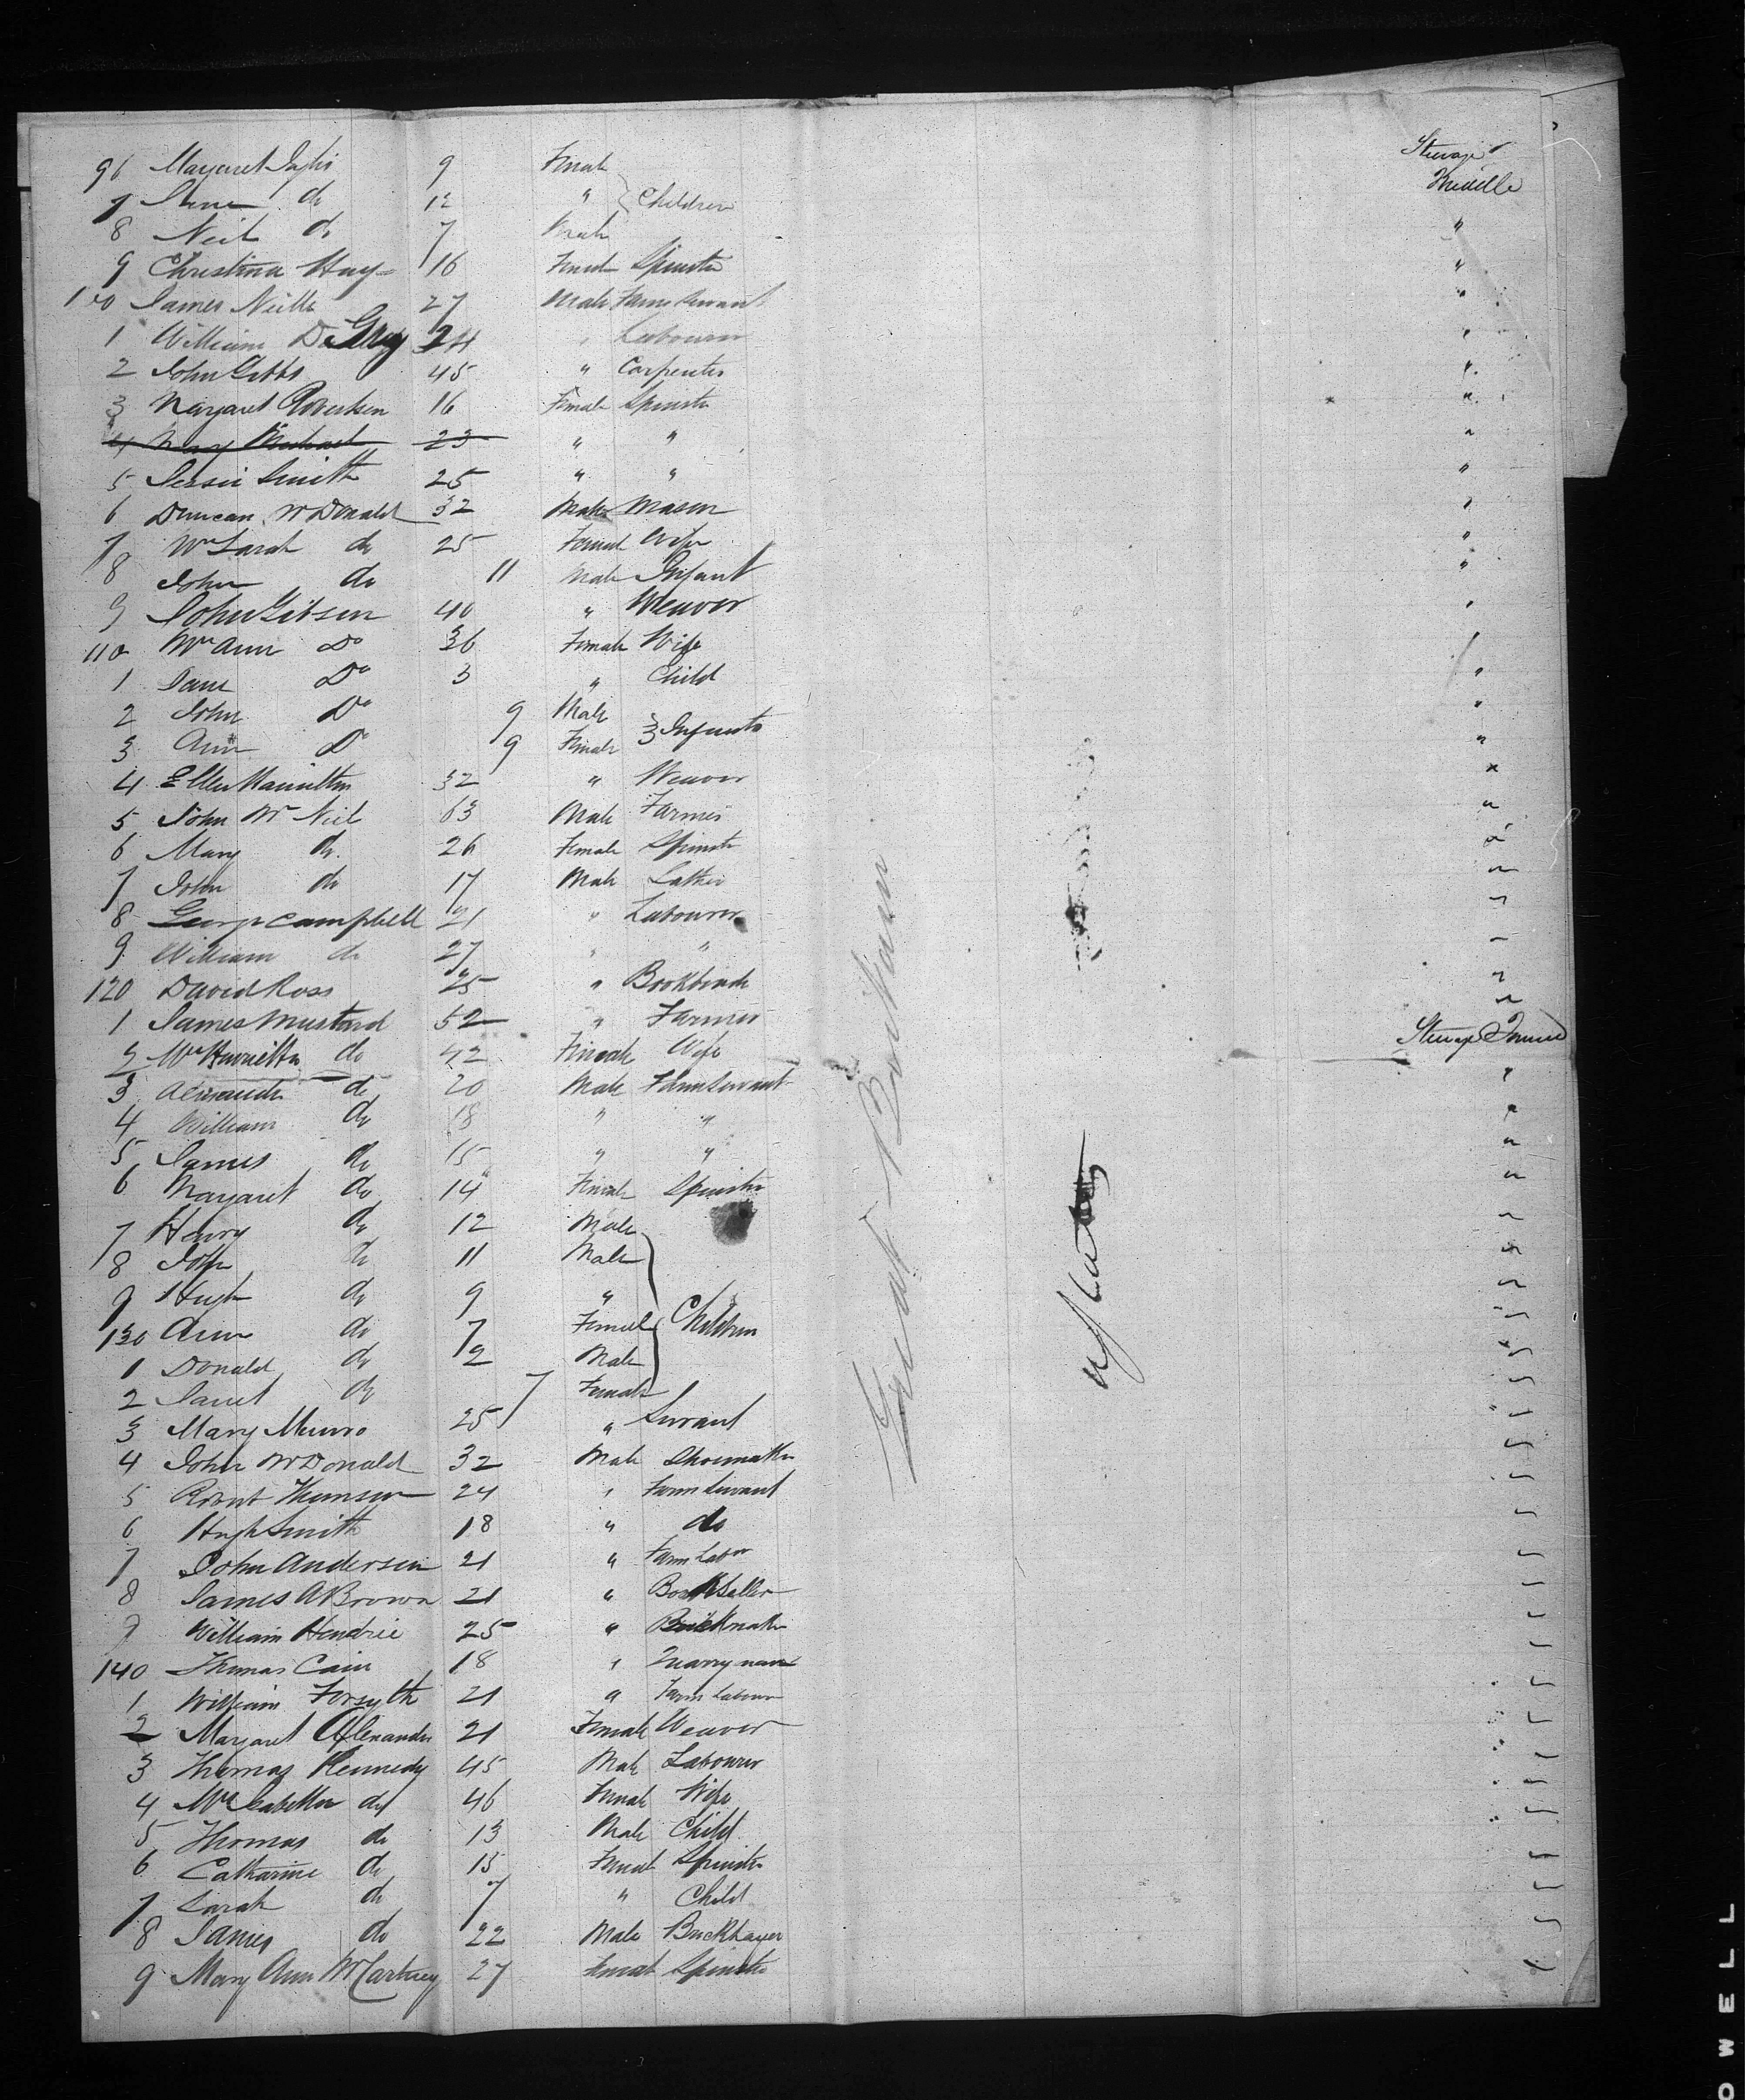 96 Margaret 9 Female Steerage
7 do 12 " Children Middle
8 Neil do 7 Male "
9 Christina Hay 16 Female Spinster "
100 James Neille 27 Male Farm Servant "
1 William 24 " Labourer "
2 John Gibbs 45 " Carpenter "
3 Margaret Robertson 16 Female Spinster "
4 Mary Michael 23 " " "
5 Jessie Smith 25 " " "
6 Duncan McDonald 32 Male Mason "
7 Mrs Sarah do 25 Female Wife "
8 John do 11 Male Infant "
9 John Gibson 40 " Weaver "
110 Mrs Ann Do 36 Female Wife
1 Jane Do 3 " Child "
2 John Do 9 Male Infants "
3 Ann Do 9 Female "
4 Ellen Hamilton 32 " Weaver "
5 John McNeil 63 Male Farmer "
6 Mary do 26 Female Spinster "
7 John do 17 Male "
8 George Campbell 21 " Labourer "
9 William do 27 " " "
120 David Ross 25 " Bookbinder "
1 James Mustard 52 " Farmer "
2 Mrs Henrietta do 42 Female Wife Steerage
3 Alexander do 20 Male Farm Servant "
4 William do 18 " " "
5 James do 15 " " "
6 Margaret do 14 Female Spinster "
7 Henry do 12 Male "
8 John do 11 Male "
9 Hugh do 9 " "
130 Ann do 7 Female Children "
1 Donald do 2 Male "
2 Janet do 7 Female "
3 Mary Munro 25 " Servant "
4 John McDonald 32 Male Shoemaker "
5 Robert Thomson 24 " Farm Servant "
6 Hugh Smith 18 " do "
7 John Anderson 21 " Farm Labor "
8 James A Brown 21 " Bookseller "
9 William Hendrie 25 " Brickmaker "
140 Thomas Cain 18 " Quarryman "
1 William Forsyth 21 " Farm Labour "
2 Margaret Alexander 21 Female Weaver "
3 Thomas Kennedy 45 Male Labourer "
4 Mrs Isabella do 46 Female Wife "
5 Thomas do 13 Male Child "
6 Catharine do 15 Female Spinster "
7 Sarah do 7 " Child "
8 James do 22 Male Bricklayer "
9 Mary Ann McCartney 27 Female Spinster "
Great Britain
OWELL